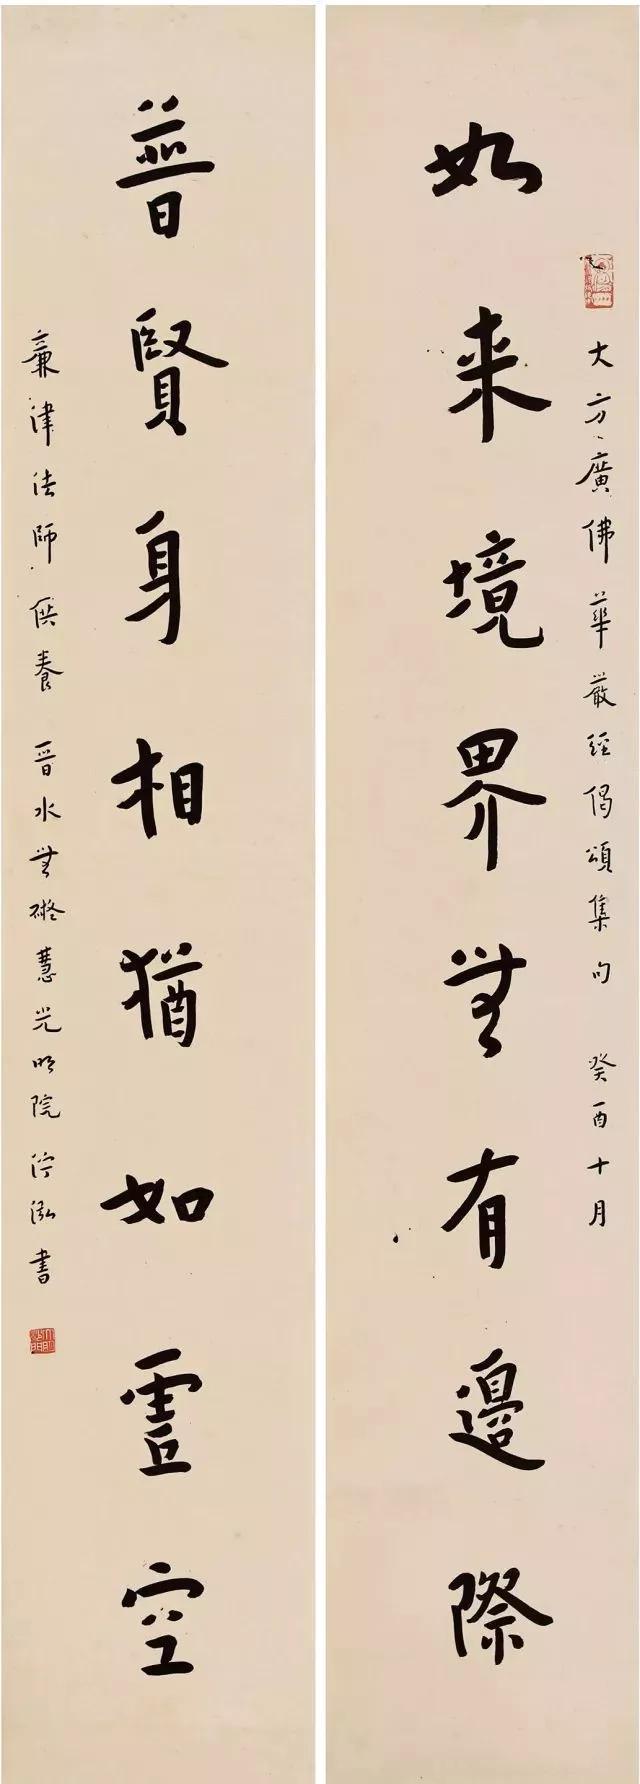 大方廣佛華嚴經偈頌集句 癸酉十月
如来境界無有邊際
普賢身相猶如虛空
廉津法師供養 晉水無礙慧光明院沙門
書